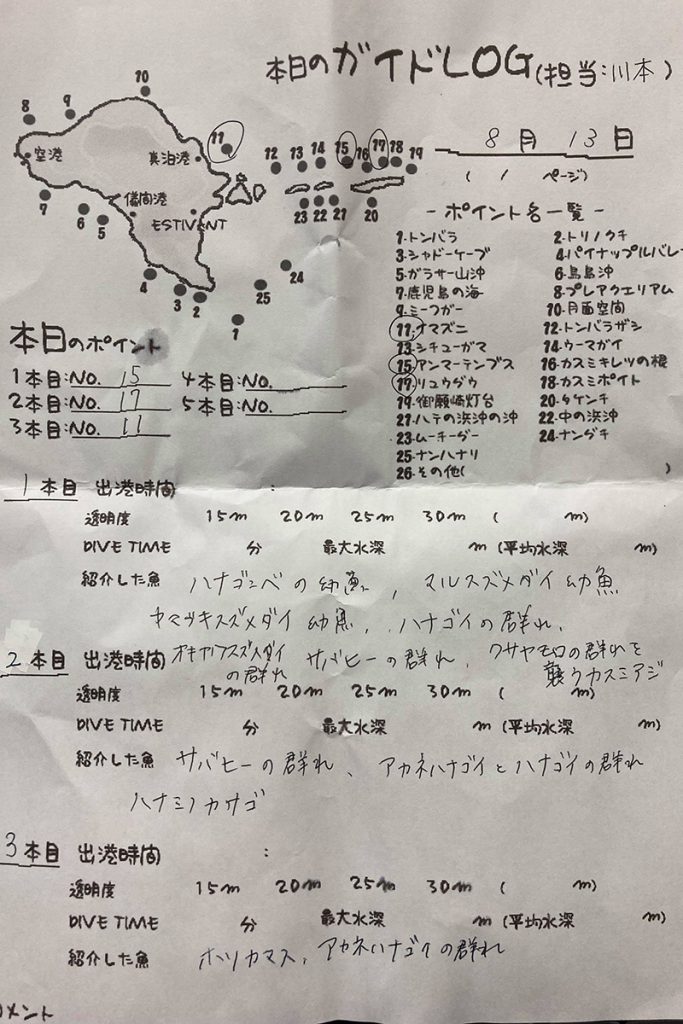 本日のガイドLOG(担当:川本)
8月13日
(1ページ)
10
9
8
11
空港
真泊港
12 13 14 15 16 17 18 19
儀間港
ESTIVANT
7
6
5
23 22 21
20
4
3
2
24
25
1
-ポイント名一覧-
1.トンバラ 2.トリノクチ
3.シャドーケーブ 4.パイナップルバレ
5.ガラサー山沖 6.鳥島沖
7.鹿児島の海 8.プレアクエリアム
9.ミーフガー 10.月面空間
11.ナマズニ 12.トンバラザシ
13.シチューガマ 14.ウーマガイ
15.アンマーテンプス 16.カスミキレツの根
17.リュウダウ 18.カスミポイト
19.御願崎灯台 20.タケンチ
21.ハテの浜沖の沖 22.中の浜沖
23.ムーチーダー 24.ナンダチ
25.ナンハナリ
26.その他( )
本日のポイント
1本目:NO. 15 4本目:NO.
2本目:NO. 17 5本目:NO.
3本目:NO. 11
1本目 出港時間 :
透明度 15m 20m 25m 30m ( m)
DIVE TIME 分 最大水深 m(平均水深 m)
紹介した魚 ハナゴンベの幼魚、マルスズメダイ幼魚
ヤマブキスズメダイ幼魚、ハナゴイの群れ、
オキナワスズメダイの群れ サバヒーの群れ、クサヤモロの群れを襲うカスミアジ
2本目 出港時間
透明度 15m 20m 25m 30m ( m)
DIVE TIME 分 最大水深 m(平均水深 m)
紹介した魚 サバヒーの群れ、アカネハナゴイとハナゴイの群れ
ハナミノカサゴ
3本目 出港時間 :
透明度 15m 20m 25m 30m ( m)
DIVE TIME 分 最大水深 m(平均水深 m)
紹介した魚 ホソカマス、アカネハナゴイの群れ
コメント